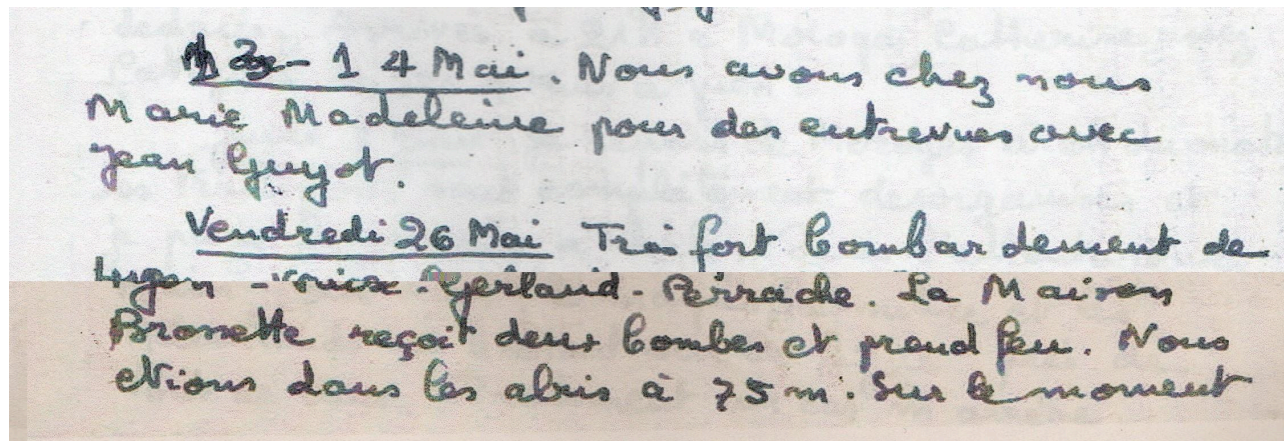 - 14 Mai. Nous avons chez nous
Marie Madeleine pour des entrevues avec
Jean Guyot.
Vendredi 26 Mai Très fort bombardement de
Lyon - Vaise - Gerland - Perrache. La Maison
Brossette reçoit deux bombes et prend feu. Nous
étions dans les abris à 75 m. Sur le moment